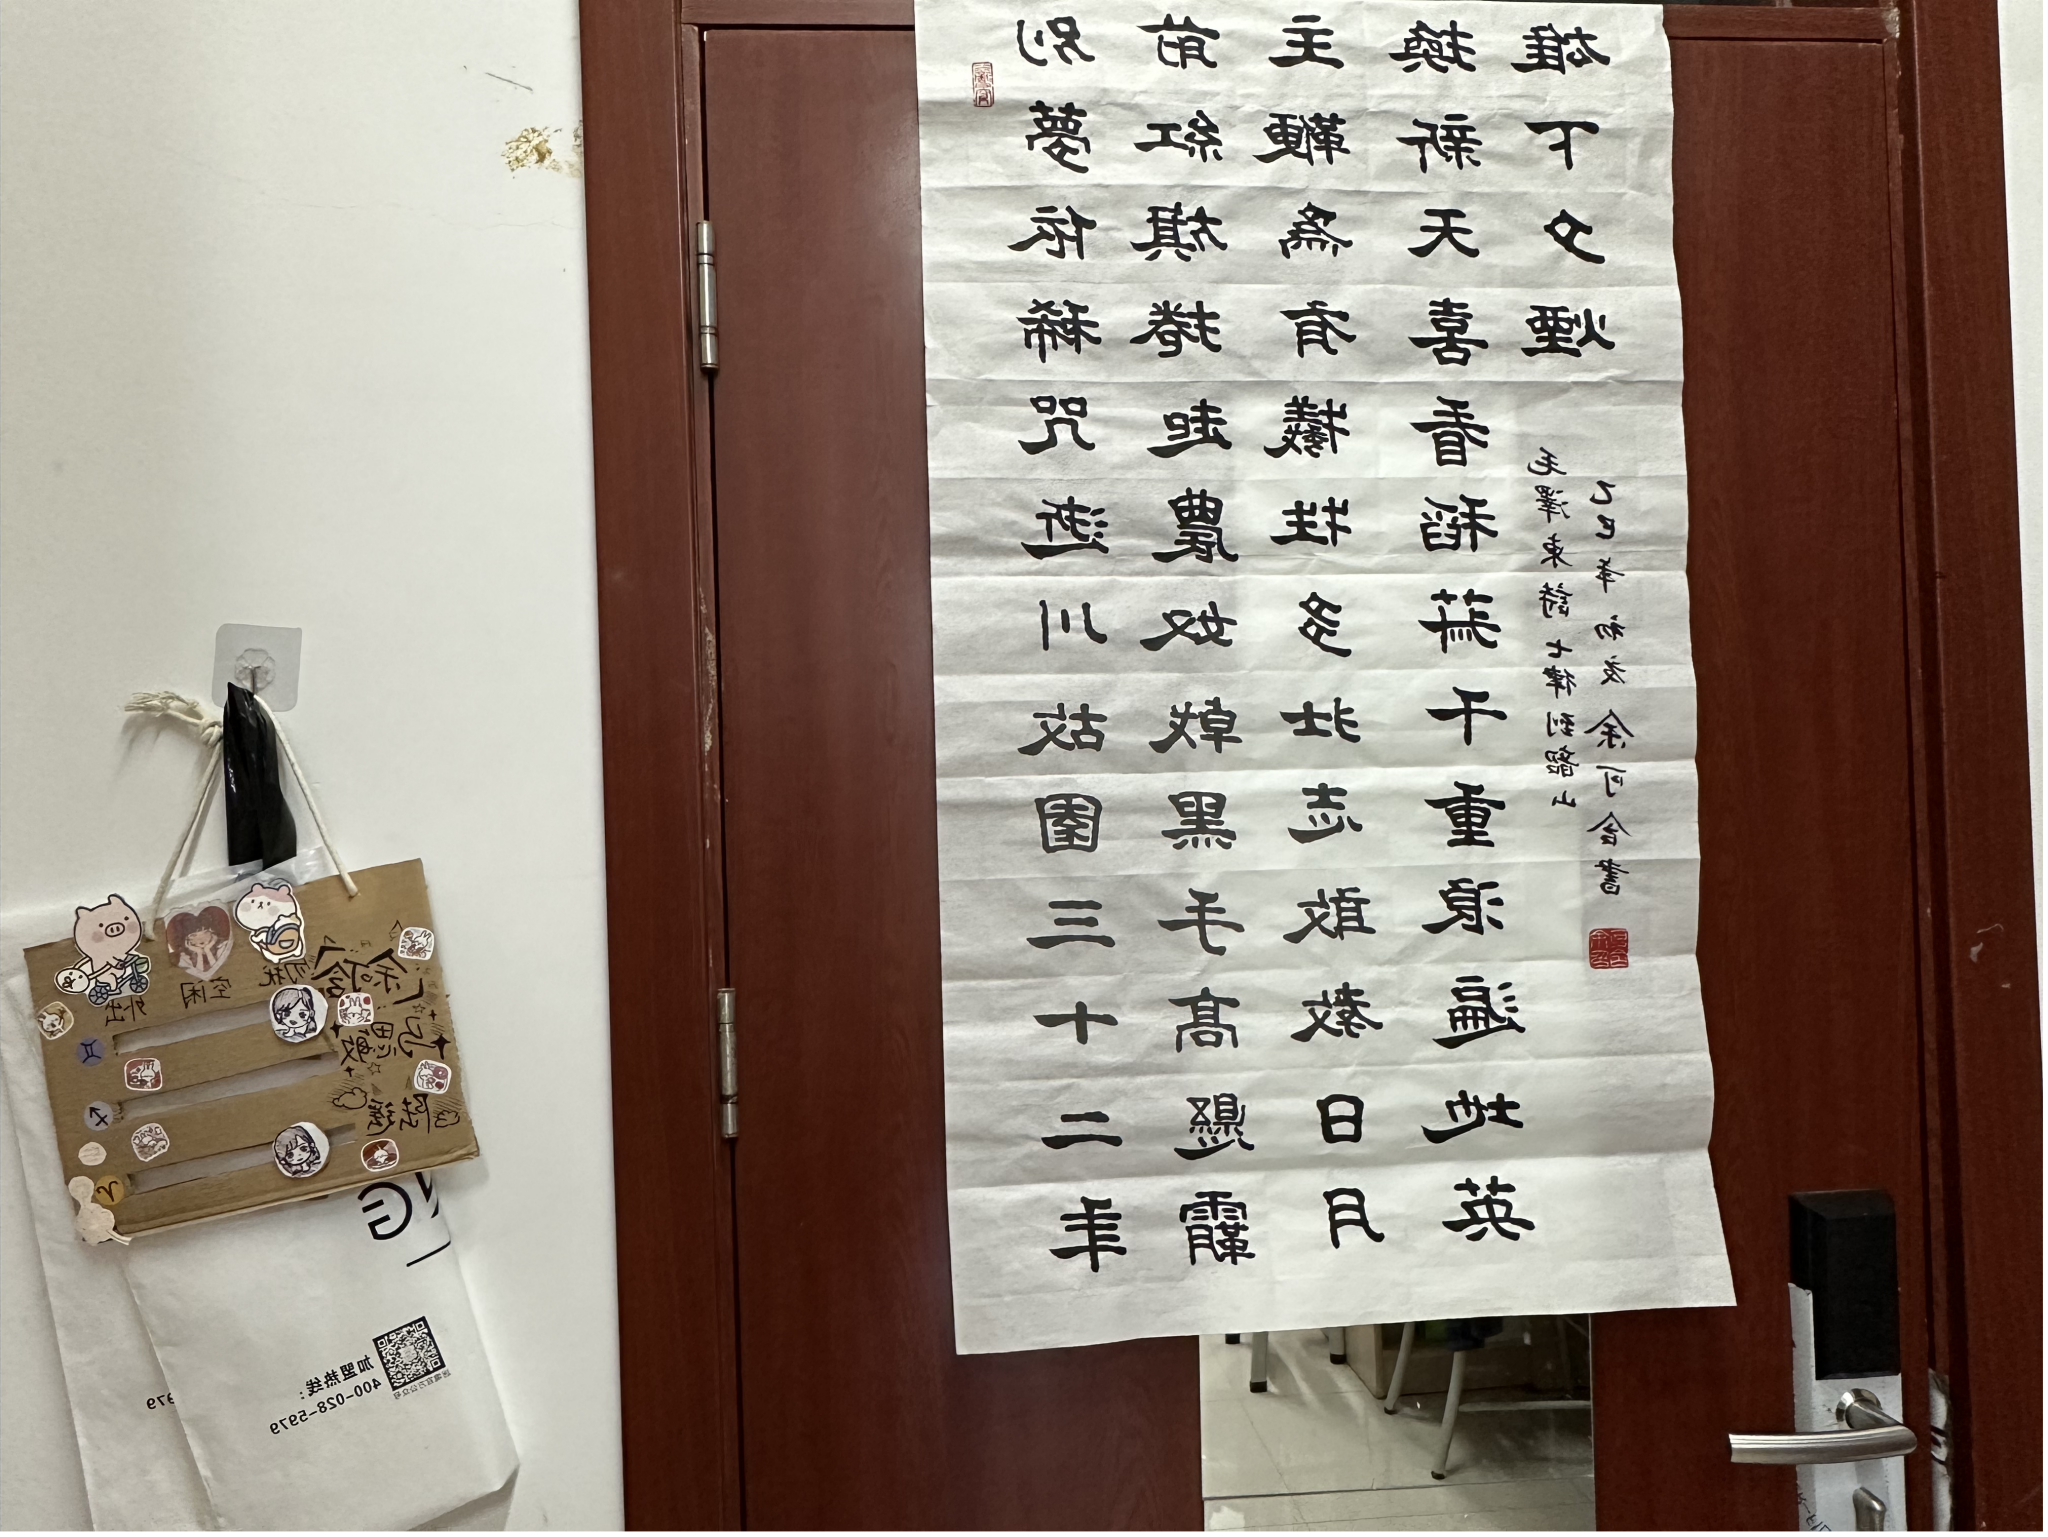 別夢依稀咒逝川故園三十二年
前紅旗捲起農奴戟黑手高懸霸
主鞭為有犧牲多壯志敢教日月
換新天喜看稻菽千重浪遍地英
雄下夕煙
毛澤東詩七律到韶山
乙巳年初夏余可含書
外出
加盟热线：
400-028-5979